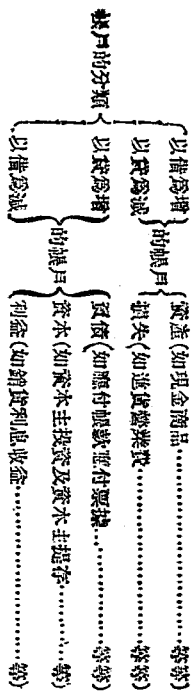 帳戶的分類
以借爲增
以貸爲減
的帳戶
資產(如現金商品………………等等)
損失(如退貨營業費………………等等)
以貸爲增
以借爲減
的帳戶
負債(如應付帳款應付票據………等等)
資本(如資本主投資及資本主提存………等)
利益(如銷貨利息收益………………等)